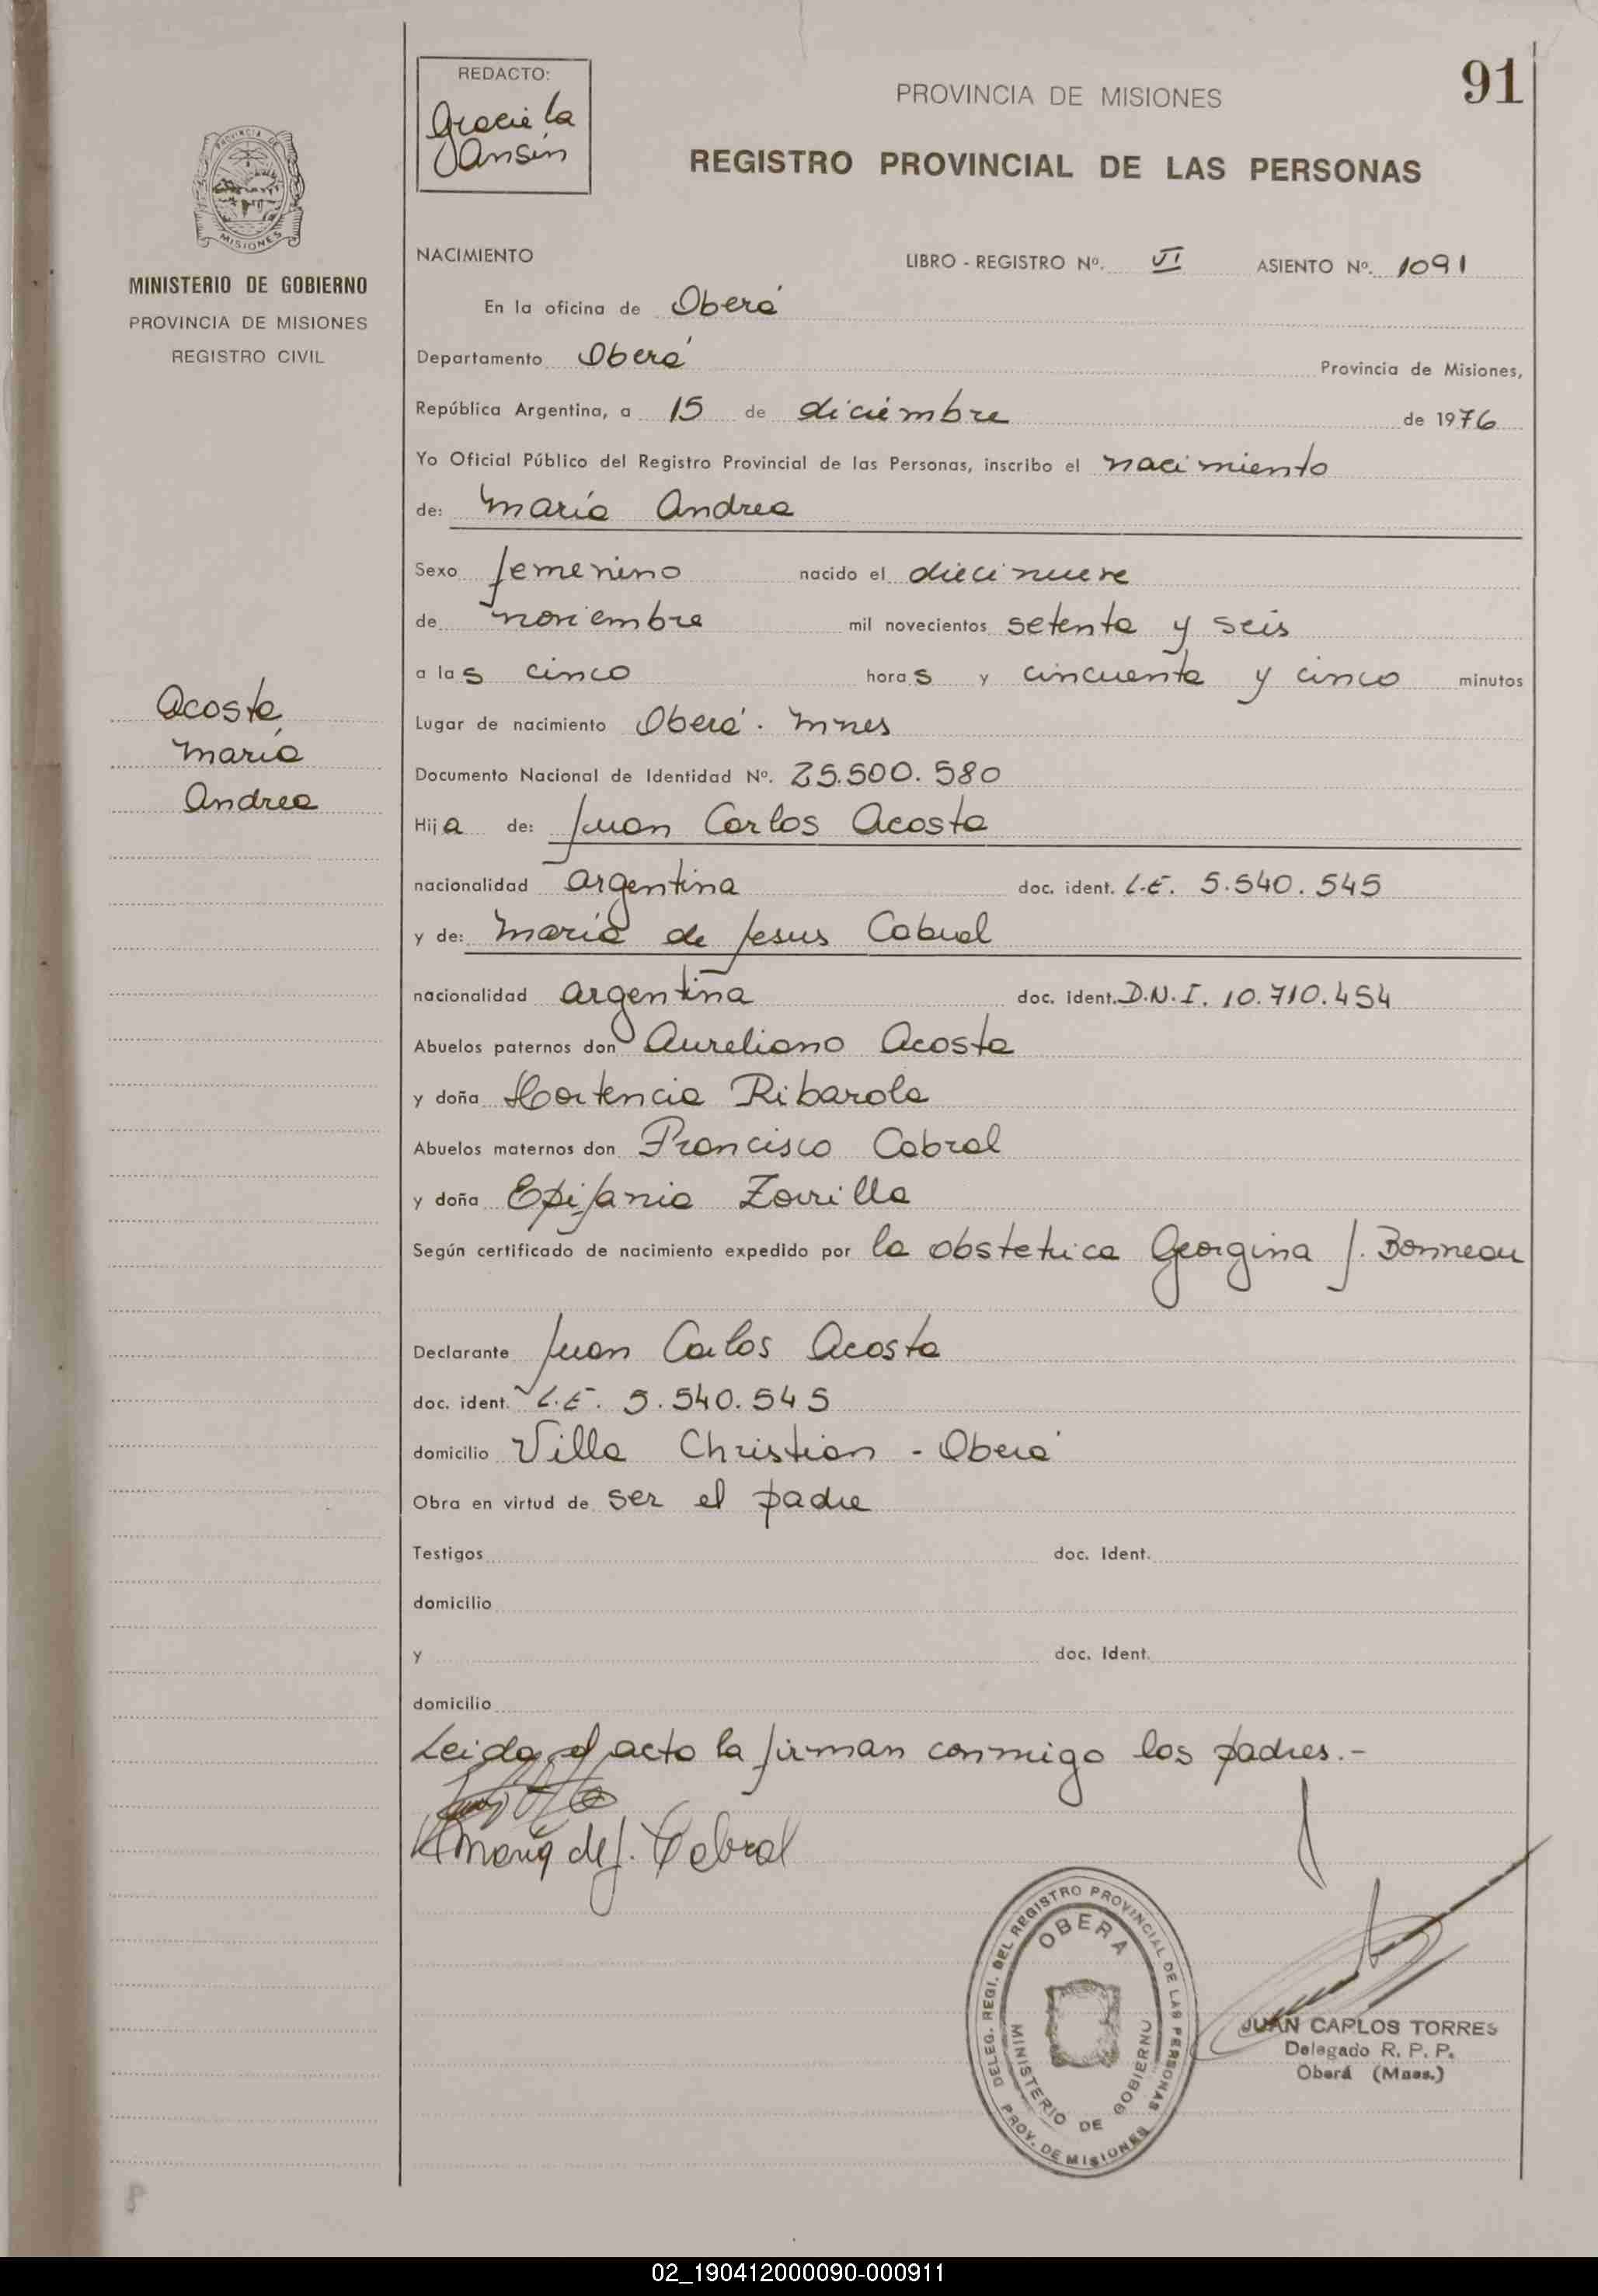 91
REDACTO:
Graciela
Jansin
PROVINCIA DE MISIONES
REGISTRO PROVINCIAL DE LAS PERSONAS
PROVINCIA DE
MISIONES
MINISTERIO DE GOBIERNO
PROVINCIA DE MISIONES
REGISTRO CIVIL
NACIMIENTO LIBRO - REGISTRO Nº. VI ASIENTO Nº. 1091
En la oficina de Oberá
Departamento Oberá Provincia de Misiones,
República Argentina, a 15 de diciembre de 1976
Yo Oficial Público del Registro Provincial de las Personas, inscribo el nacimiento
de: María Andrea
Sexo femenino nacido el diecinueve
de noviembre mil novecientos setenta y seis
a las cinco horas y cincuenta y cinco minutos
Acosta
María
Andrea
Lugar de nacimiento Oberá. Mnes
Documento Nacional de Identidad Nº. 25.500.580
Hija de: Juan Carlos Acosta
nacionalidad argentina doc. ident. L.E. 5.540.545
y de: María de Jesus Cabral
nacionalidad argentina doc. ident. D.N.I. 10.710.454
Abuelos paternos don Aureliano Acosta
y doña Hortencia Ribarola
Abuelos maternos don Francisco Cabral
y doña Epifania Zorrilla
Según certificado de nacimiento expedido por la obstetrica Georgina J. Bonneau
Declarante Juan Carlos Acosta
doc. ident. L.E. 5.540.545
domicilio Villa Christian - Oberá
Obra en virtud de ser el padre
Testigos doc. Ident.
domicilio
y doc. Ident.
domicilio
Leida el acto la firman conmigo los padres.-
María de J. Cabral
DELEG. REGI. DEL REGISTRO PROVINCIAL DE LAS PERSONAS
OBERA
MINISTERIO DE GOBIERNO
PROV. DE MISIONES
JUAN CARLOS TORRES
Delegado R. P. P.
Oberá (Mnes.)
02_190412000090-000911